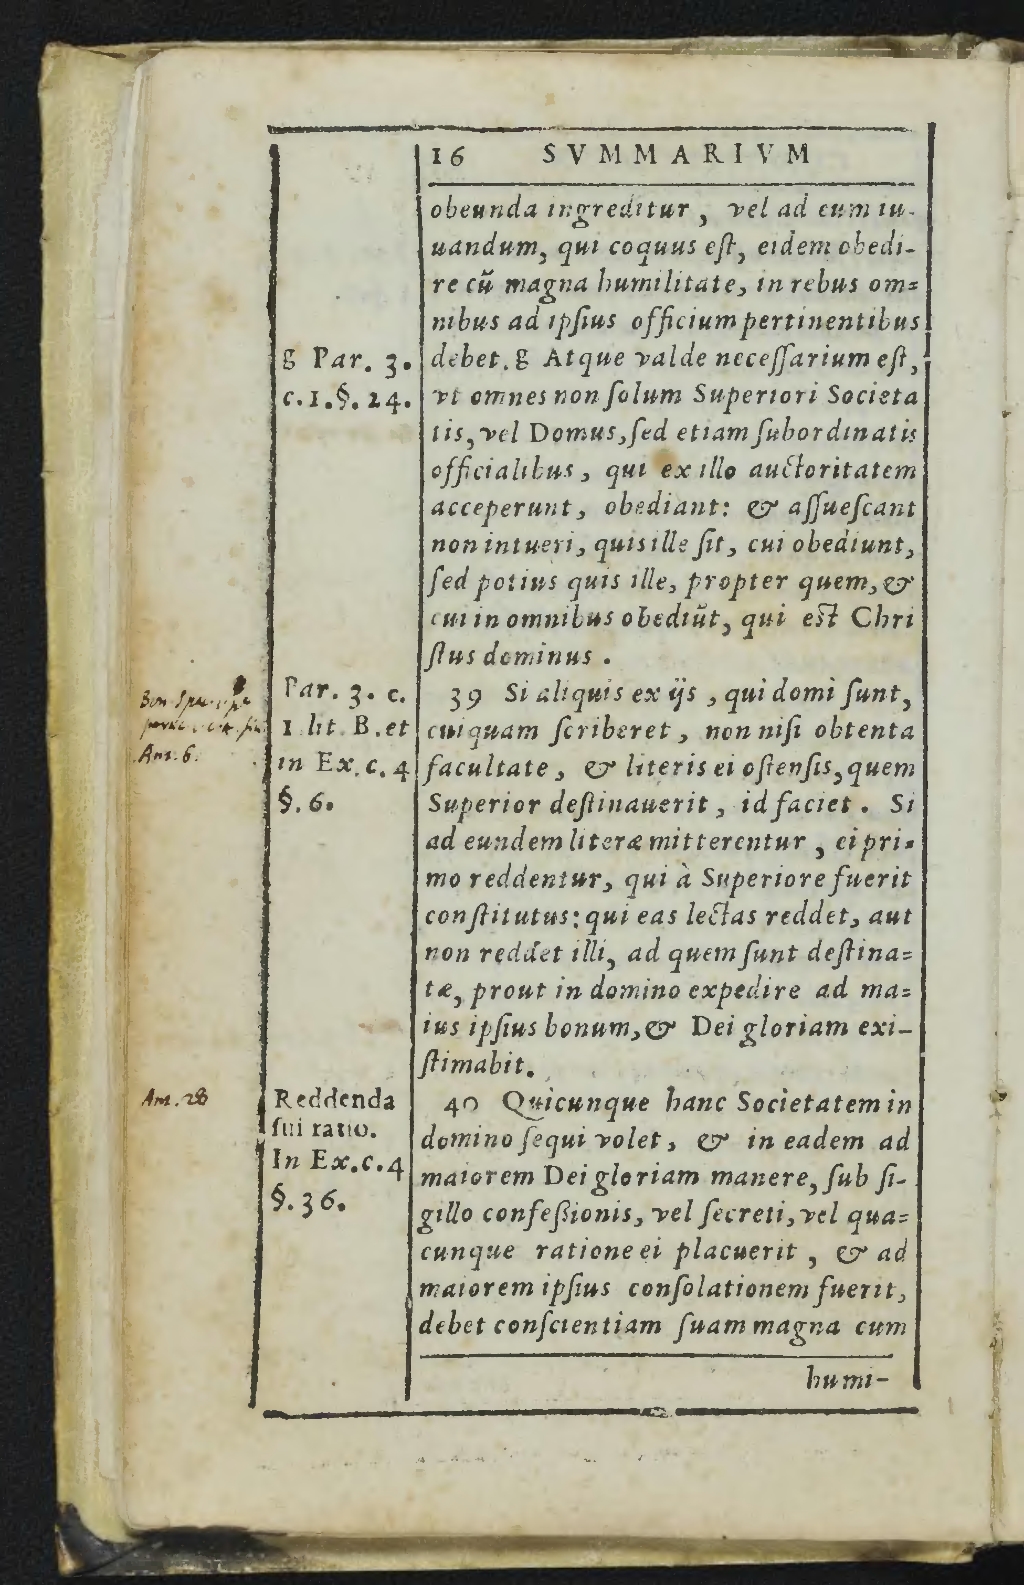 16 SVMMARIVM
obeunda ingreditur, vel ad eum iu-
uandum, qui coquus eſt, eidem obedi-
re cū magna humilitate, in rebus om=
nibus ad ipſius officium pertinentibus
debet. g Atque valde neceſſarium eſt,
vt omnes non ſolum Superiori Societa
tis, vel Domus, ſed etiam ſubordinatis
officialibus, qui ex illo auctoritatem
acceperunt, obediant: & aſſueſcant
non intueri, quis ille ſit, cui obediunt,
ſed potius quis ille, propter quem, &
cui in omnibus obediūt, qui eſt Chri
ſtus dominus.
g Par. 3.
c.1.§.24.
39 Si aliquis ex ijs, qui domi ſunt,
cuiquam ſcriberet, non niſi obtenta
facultate, & literis ei oſtenſis, quem
Superior deſtinauerit, id faciet. Si
ad eundem literæ mitterentur, ei pri=
mo reddentur, qui à Superiore fuerit
conſtitutus: qui eas lectas reddet, aut
non reddet illi, ad quem ſunt deſtina=
tæ, prout in domino expedire ad ma=
ius ipſius bonum, & Dei gloriam exi-
ſtimabit.
Par. 3. c.
1 lit. B. et
in Ex. c. 4
§.6.
Am. 6.
40 Quicunque hanc Societatem in
domino ſequi volet, & in eadem ad
maiorem Dei gloriam manere, ſub ſi-
gillo confeßionis, vel ſecreti, vel qua=
cunque ratione ei placuerit, & ad
maiorem ipſius conſolationem fuerit,
debet conſcientiam ſuam magna cum
Reddenda
ſui ratio.
In Ex.c.4
§.36.
Am. 28
humi-